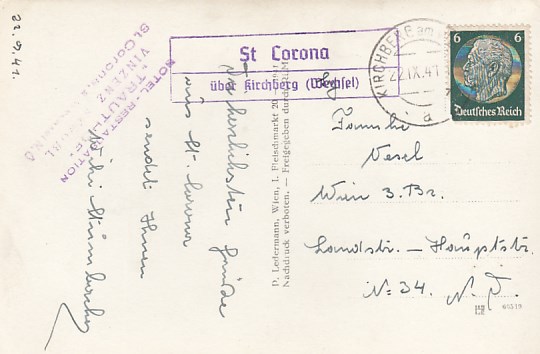 22.9.41.
HOTEL-RESTAURATION
"TRAUTHAHN"
VINZENZ
St Corona
über Kirchberg (Wechsel)
KIRCHBERG am
22.IX.41
a
6 6
Deutsches Reich
Die herzlichsten Grüße
aus St. Corona
sendet Ihnen
P. Ledermann, Wien, I. Fleischmarkt 20
Nachdruck verboten. — Freigegeben durch
Familie
Vesel
Wien 3. Bz.
Landstr. — Hauptstr.
No 34. N. D.